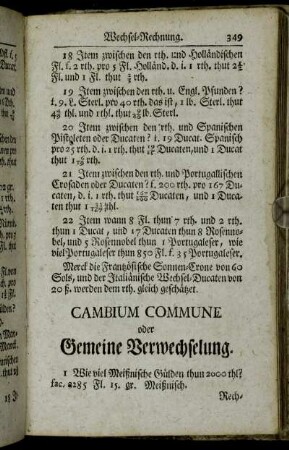 Wechsel-Rechnung. 349
18 Item zwischen den rth. und Holländischen
Fl. f. 2 rth. pro 5 Fl. Holländ. d. i. 1 rth. thut 2½
Fl. und 1 Fl. thut ⅖ rth.
19 Item zwischen den rth. u. Engl. Pfunden?
f. 9. ₤. Sterl. pro 40 rth. das ist, 1 lb. Sterl. thut
rth. und 1 thl. thut lb. Sterl.
20 Item zwischen den rth. und Spanischen
Pistoleten oder Ducaten? f. 19 Ducat. Spanisch
pro 25 rth. d. i. 1 rth. thut Ducaten, und 1 Ducat
thut rth.
21 Item zwischen den rth. und Portugallischen
Crosaden oder Ducaten? f. 200 rth. pro 167 Du-
caten, d. i. 1 rth. thut Ducaten, und 1 Duca-
ten thut thl.
22 Item wann 8 Fl. thun 7 rth. und 2 rth.
thun 1 Ducat, und 17 Ducaten thun 8 Rosenno-
bel, und 5 Rosennobel thun 1 Portugaleser, wie
viel Portugaleser thun 850 Fl. f. 35 Portugaleser,
Merck die Frantzösische Sonnen-Crone von 60
Sols, und der Italiänische Wechsel-Ducaten von
20 ß. werden dem rth. gleich geschätzet.
CAMBIUM COMMUNE
oder
Gemeine Verwechselung.
1 Wie viel Meißnische Gülden thun 2000 thl?
fac. 2285 Fl. 15. gr. Meißnisch.
Rech-